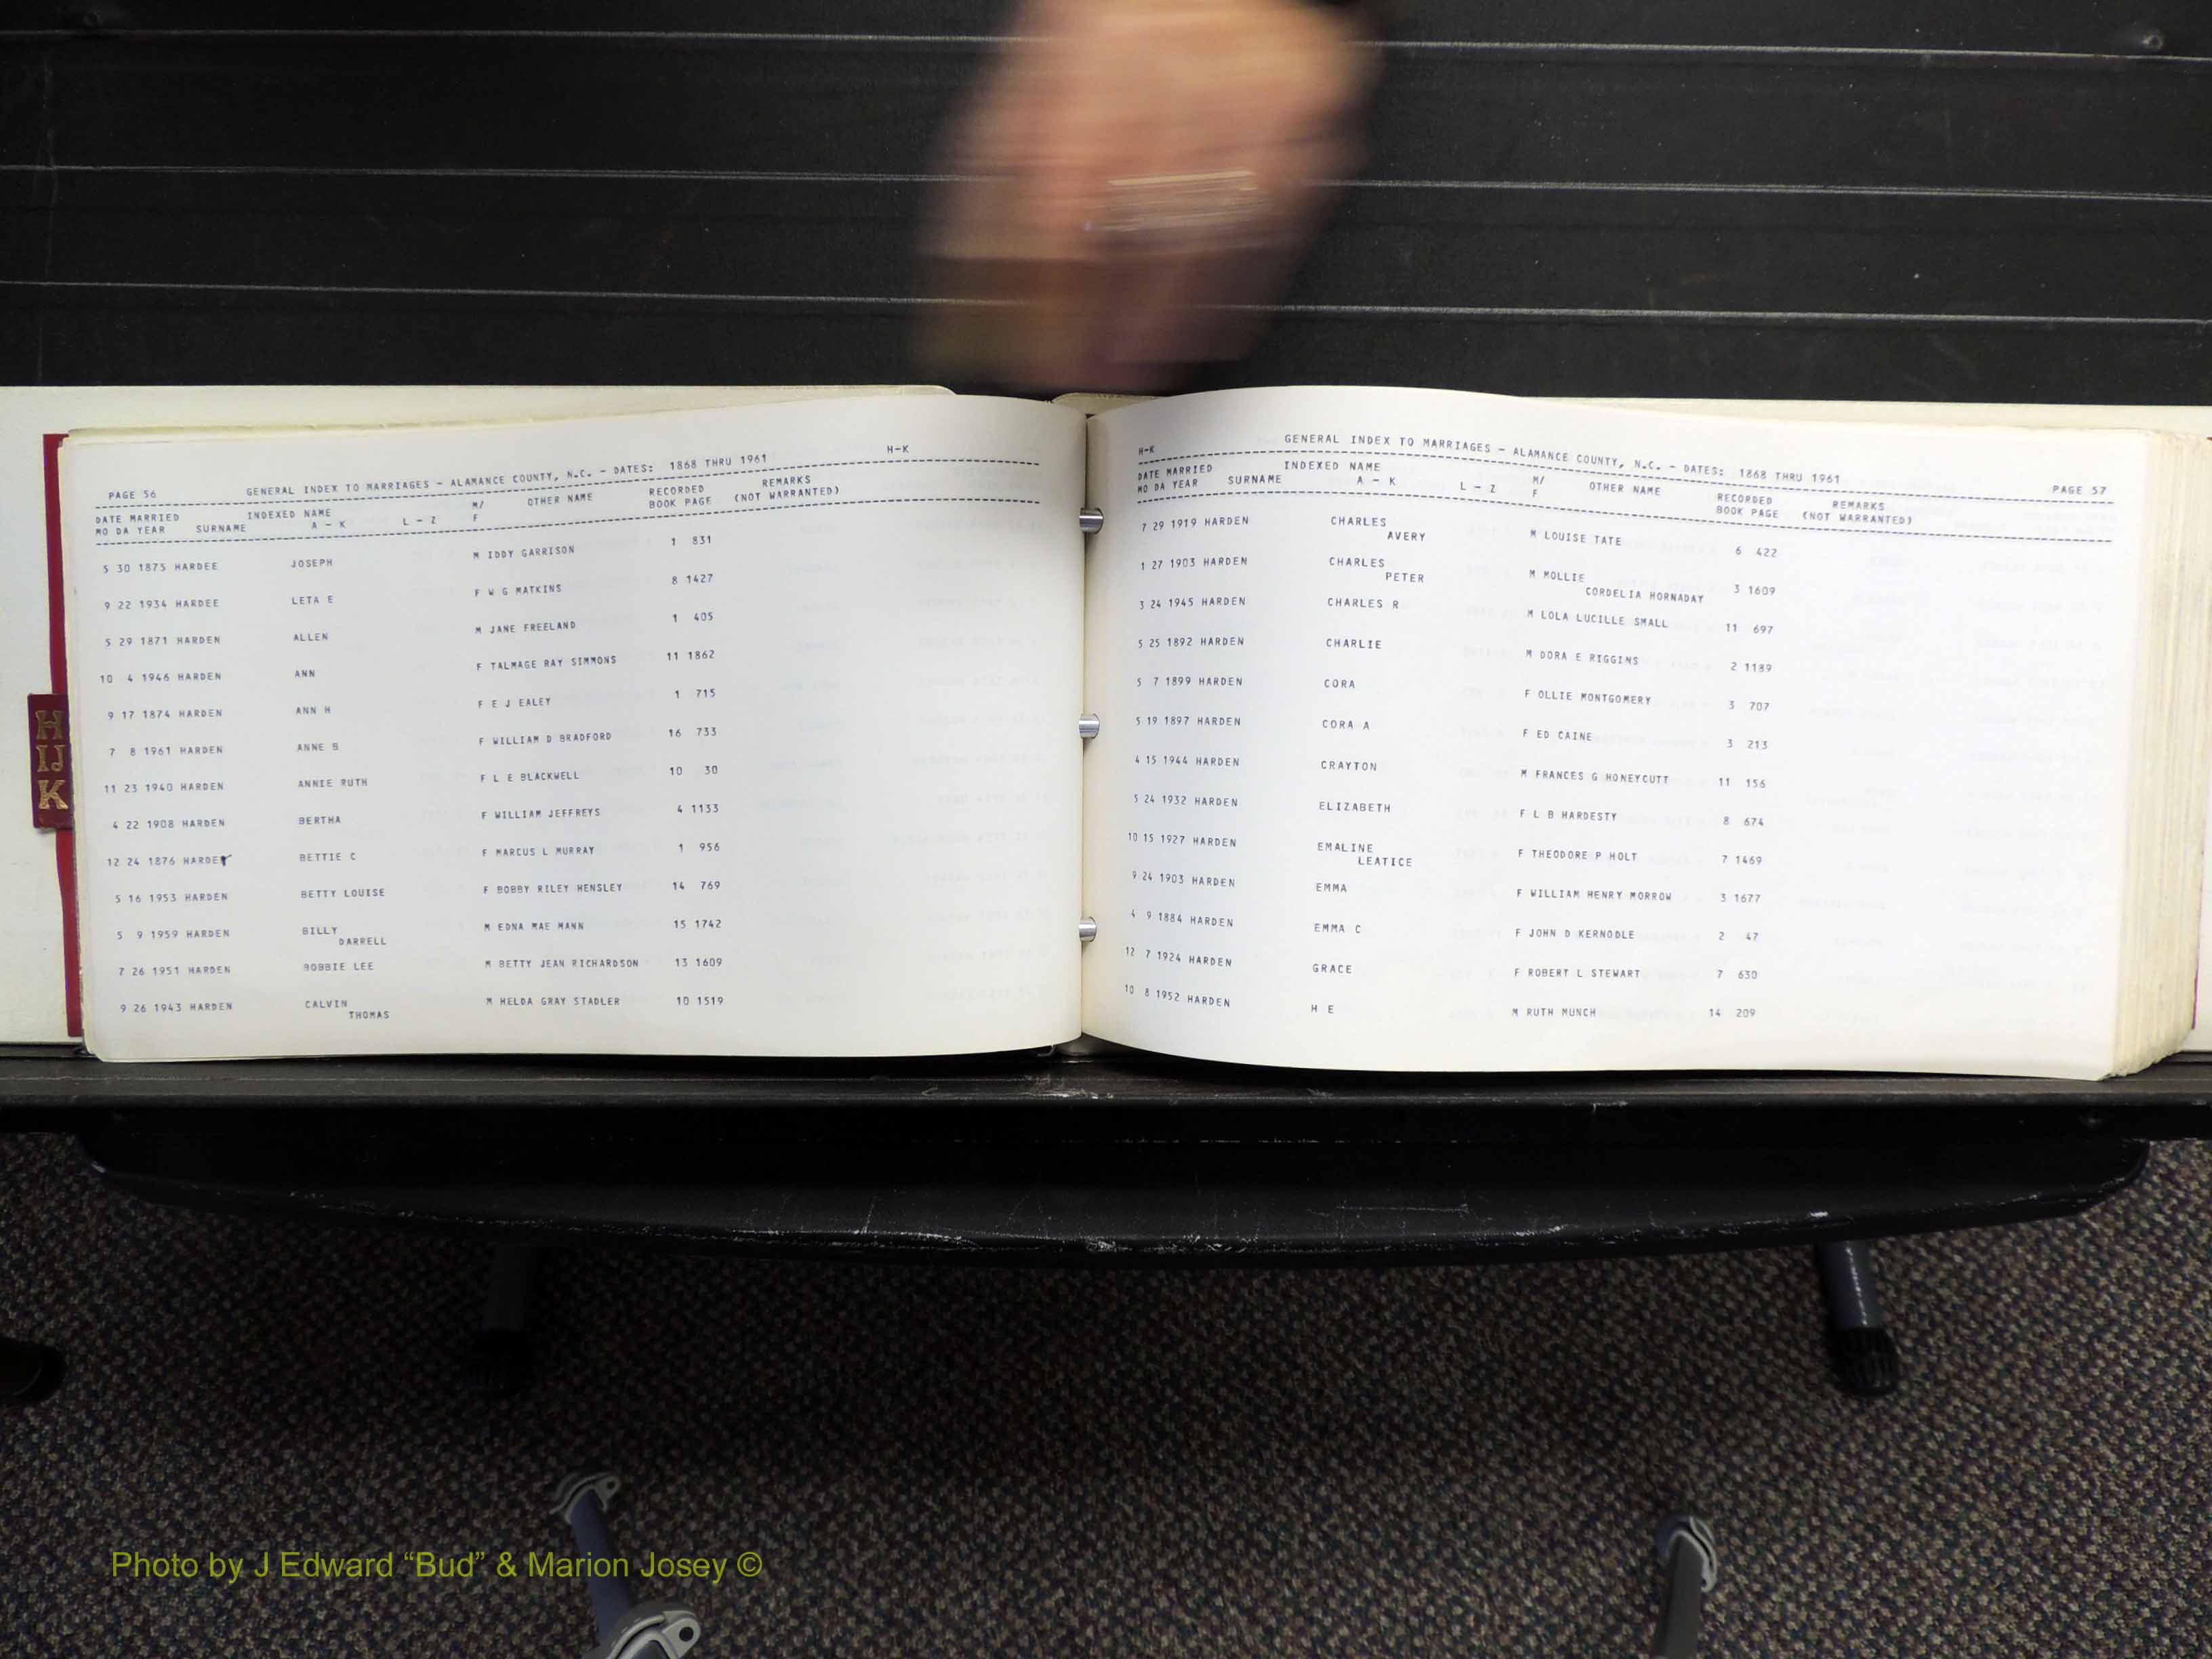 H
IJ
K
PAGE 56 GENERAL INDEX TO MARRIAGES - ALAMANCE COUNTY, N.C. - DATES: 1868 THRU 1961 H-K
DATE MARRIED INDEXED NAME M/ OTHER NAME RECORDED REMARKS
MO DA YEAR SURNAME A - K L - Z F BOOK PAGE (NOT WARRANTED)
5 30 1875 HARDEE JOSEPH M IDDY GARRISON 1 831
9 22 1934 HARDEE LETA E F W G MATKINS 8 1427
5 29 1871 HARDEN ALLEN M JANE FREELAND 1 405
10 4 1946 HARDEN ANN F TALMAGE RAY SIMMONS 11 1862
9 17 1874 HARDEN ANN H F E J EALEY 1 715
7 8 1961 HARDEN ANNE B F WILLIAM D BRADFORD 16 733
11 23 1940 HARDEN ANNIE RUTH F L E BLACKWELL 10 30
4 22 1908 HARDEN BERTHA F WILLIAM JEFFREYS 4 1133
12 24 1876 BETTIE C F MARCUS L MURRAY 1 956
5 16 1953 HARDEN BETTY LOUISE F BOBBY RILEY HENSLEY 14 769
5 9 1959 HARDEN BILLY M EDNA MAE MANN 15 1742
DARRELL
7 26 1951 HARDEN BOBBIE LEE M BETTY JEAN RICHARDSON 13 1609
9 26 1943 HARDEN CALVIN M HELDA GRAY STADLER 10 1519
THOMAS
H-K GENERAL INDEX TO MARRIAGES - ALAMANCE COUNTY, N.C. - DATES: 1868 THRU 1961 PAGE 57
DATE MARRIED INDEXED NAME M/ OTHER NAME RECORDED REMARKS
MO DA YEAR SURNAME A - K L - Z F BOOK PAGE (NOT WARRANTED)
7 29 1919 HARDEN CHARLES M LOUISE TATE 6 422
AVERY
1 27 1903 HARDEN CHARLES M MOLLIE 3 1609
PETER CORDELIA HORNADAY
3 24 1945 HARDEN CHARLES R M LOLA LUCILLE SMALL 11 697
5 25 1892 HARDEN CHARLIE M DORA E RIGGINS 2 1189
5 7 1899 HARDEN CORA F OLLIE MONTGOMERY 3 707
5 19 1897 HARDEN CORA A F ED CAINE 3 213
4 15 1944 HARDEN CRAYTON M FRANCES G HONEYCUTT 11 156
5 24 1932 HARDEN ELIZABETH F L B HARDESTY 8 674
10 15 1927 HARDEN EMALINE F THEODORE P HOLT 7 1469
LEATICE
9 24 1903 HARDEN EMMA F WILLIAM HENRY MORROW 3 1677
4 9 1884 HARDEN EMMA C F JOHN D KERNODLE 2 47
12 7 1924 HARDEN GRACE F ROBERT L STEWART 7 630
10 8 1952 HARDEN H E M RUTH MUNCH 14 209
Photo by J Edward “Bud” & Marion Josey ©